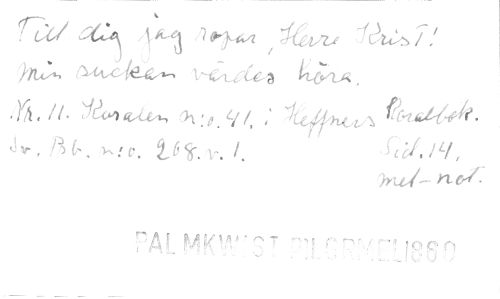 Till dig jag ropar, Herre Krist!
min suckan värdes höra.
Nr. 11. Koralen n:o. 41. i Heffners Koralbok.
Sv. Bb. n:o. 268. v. 1. Sid. 14.
met-not.
PALMKWIST PILGRMEL1860